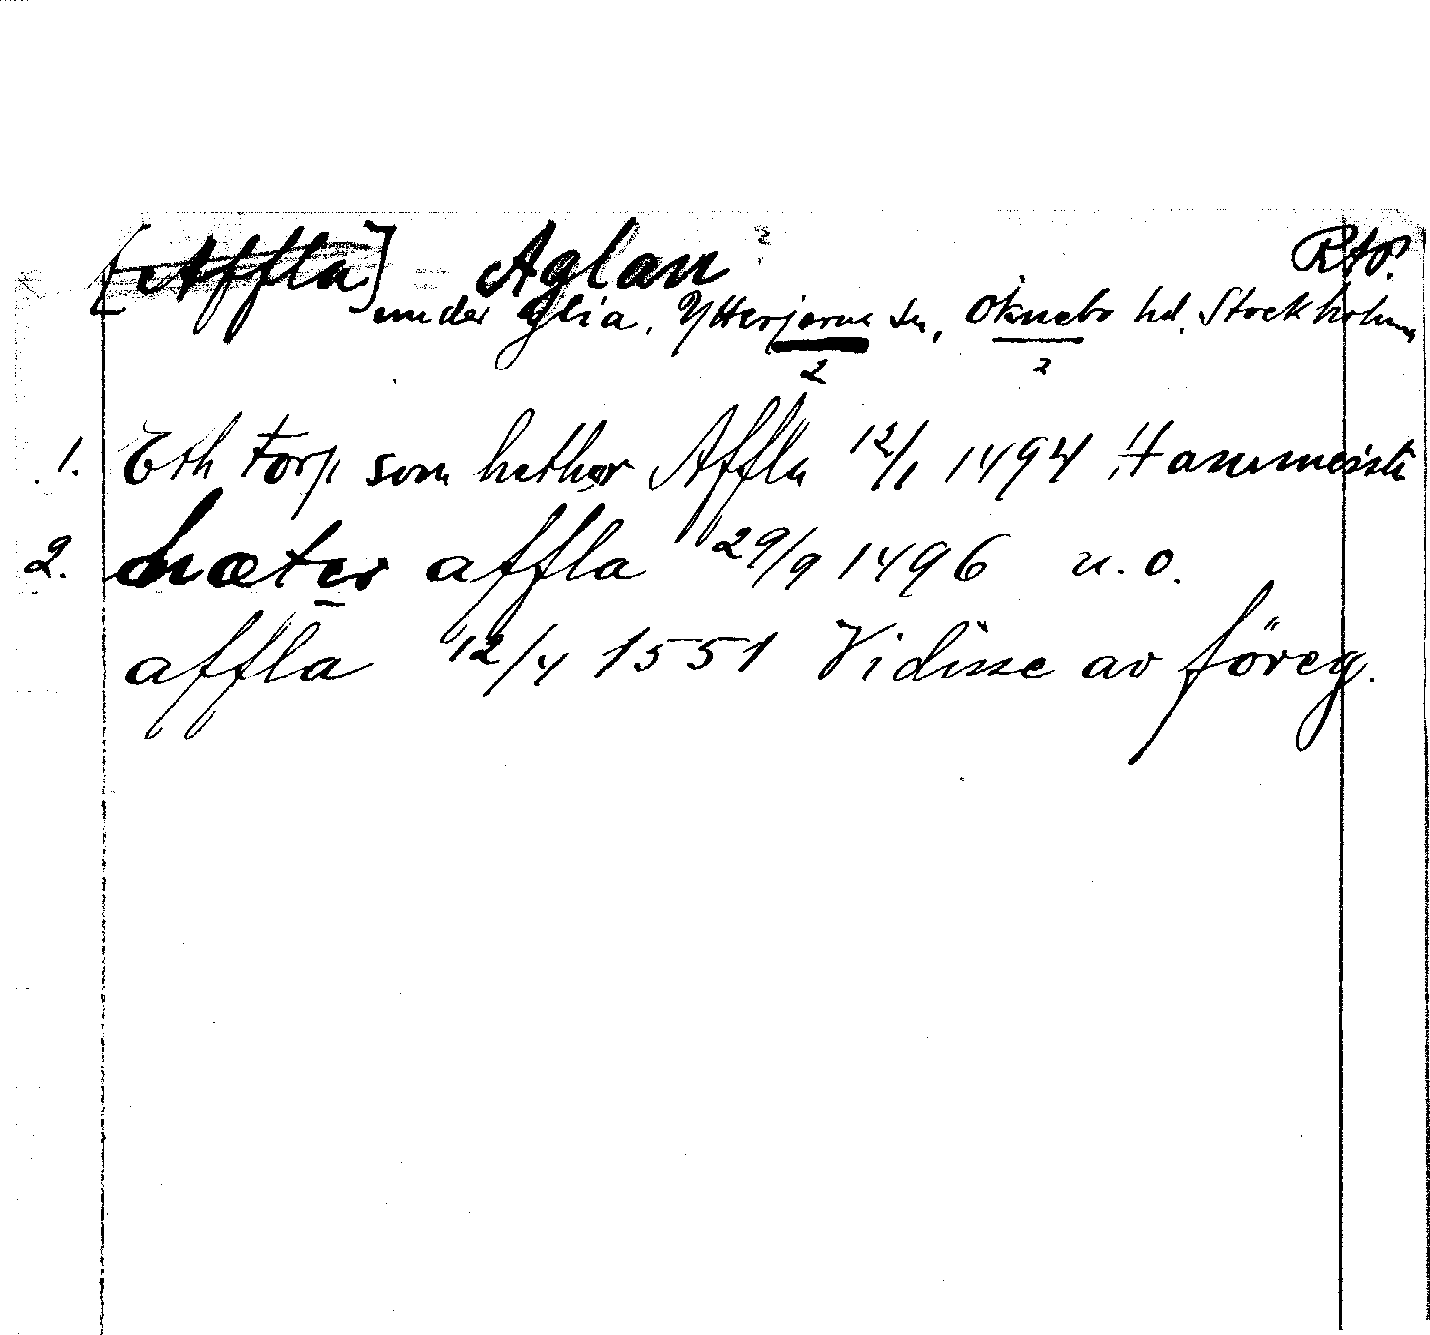 [Affla] Aglan RAP.
under Glia, Ytterjärna sn, Öknebo hd. Stockholms
2 2
1. Eth torp som hether Affla 12/1 1494 Hammersta
2. hæter affla 29/9 1496 u.o.
affla 12/4 1551 Vidisse av föreg.